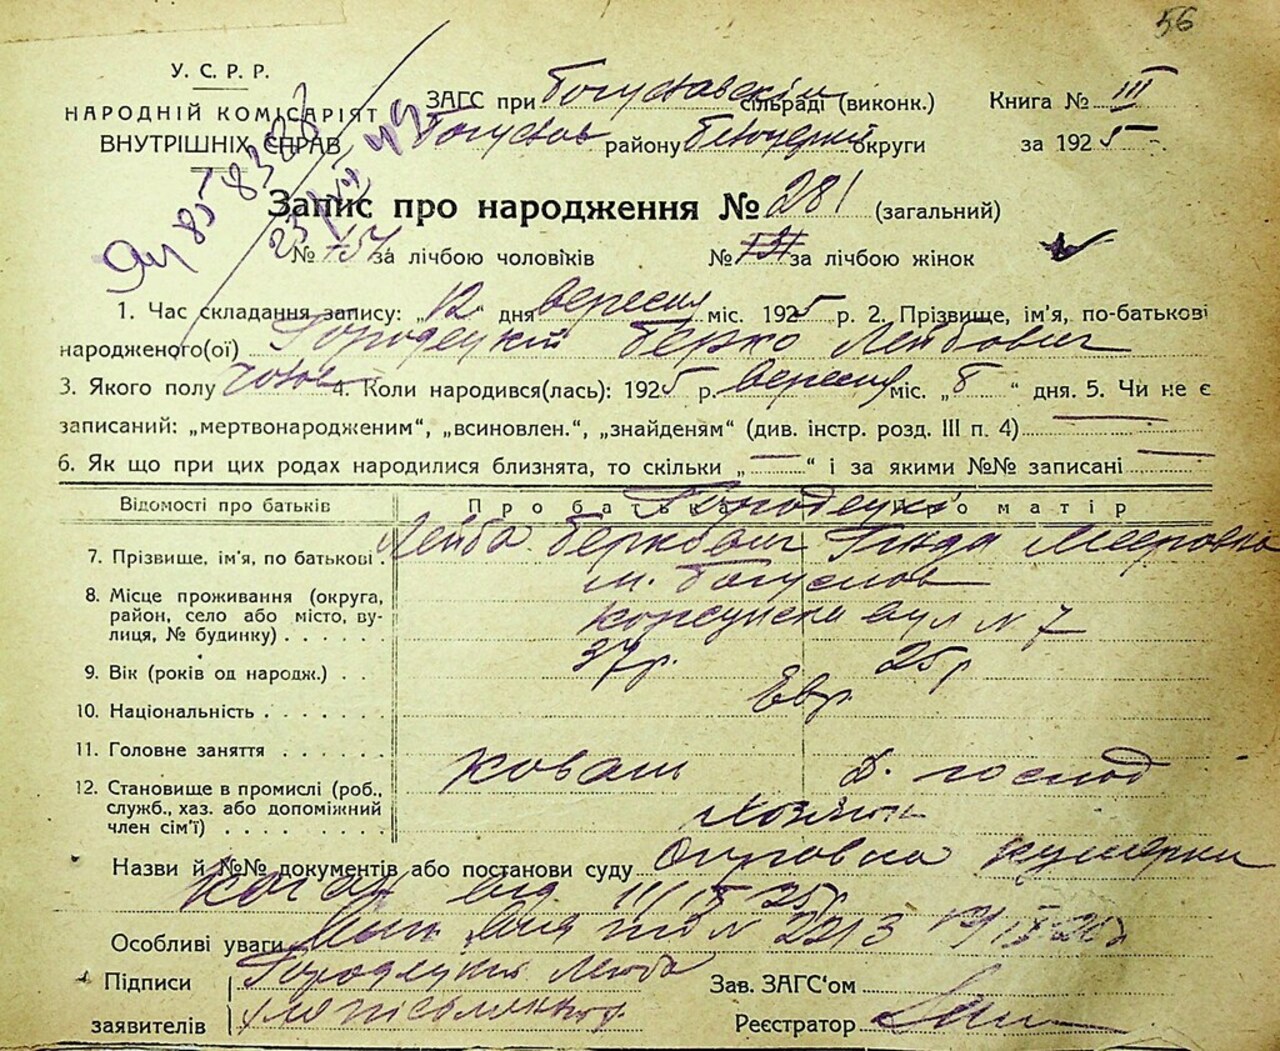 56
У. С. Р. Р.
НАРОДНІЙ КОМІСАРІЯТ
ВНУТРІШНІХ СПРАВ
ЗАГС при Богуславскім сільраді (виконк.)
Книга № III
Богуслав району Білоцерків округи
за 1925
Запис про народження № 281 (загальний)
№ 154 за лічбою чоловіків № за лічбою жінок
1. Час складання запису: „12“ дня вересня міс. 1925 р. 2. Прізвище, ім'я, по-батькові
народженого(ої) Городецкій Берко Лейбович
3. Якого полу чолов 4. Коли народився(лась): 1925 р. вересня міс. „8“ дня. 5. Чи не є
записаний: „мертвонародженим“, „всиновлен.“, „знайденям“ (див. інстр. розд. III п. 4)
6. Як що при цих родах народилися близнята, то скільки „ “ і за якими №№ записані
Відомості про батьків Про батька Про матір
Городецкі
7. Прізвище, ім'я, по батькові Лейба Беркович Гинда Мееровна
м. Богуслав
8. Місце проживання (округа, район, село або місто, вулиця, № будинку) Корсунска вул N 7
9. Вік (років од народж.) 37р. 25р
10. Національність Евр.
11. Головне заняття Коваль Д. господ
12. Становище в промислі (роб., служб., хаз. або допоміжний член сім'ї) Хозяин
Назви й №№ документів або постанови суду Акушерки
Коган від 11/IX 25р
Особливі уваги N 2213
Підписи Городецкій Лейба
заявителів
Зав. ЗАГС'ом
Реєстратор